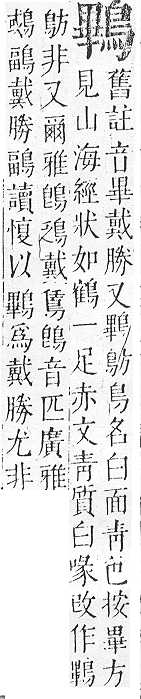 鷝
舊註音畢戴勝又鷝鴋鳥名白面靑色按畢方
見山海經狀如鶴一足赤文靑質白喙改作鷝
鴋非又爾雅鵖鴔戴鵀鵖音匹廣雅
鶝戴勝鶝讀愎以鷝爲戴勝尤非